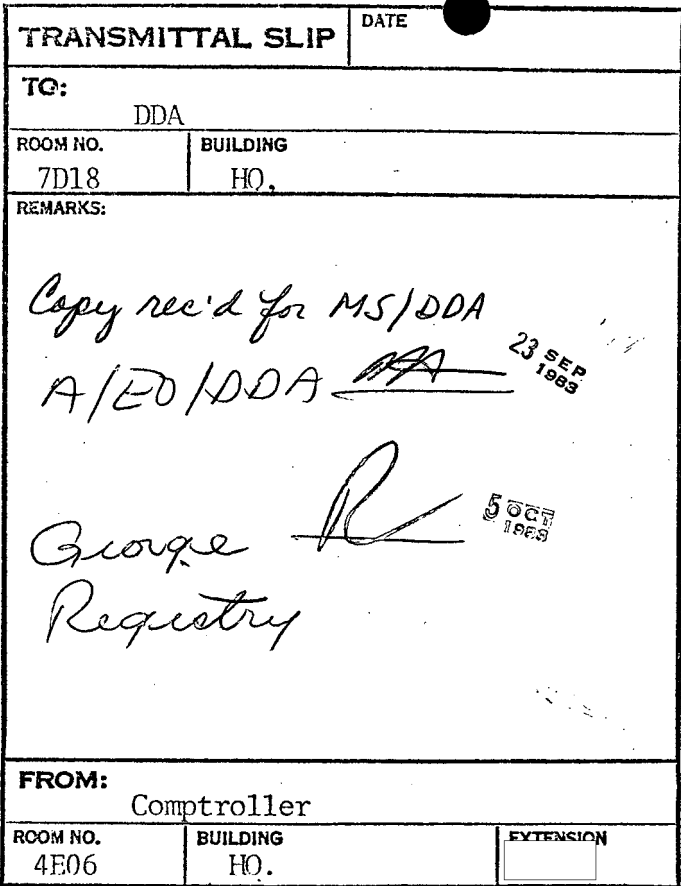 TRANSMITTAL SLIP
DATE
TO:
DDA
ROOM NO.
BUILDING
7D18
HQ,
REMARKS:
Copy rec'd for MS/DDA
A/EO/DDA
23 SEP
1983
George
5 OCT
1983
Registry
FROM:
Comptroller
ROOM NO.
BUILDING
EXTENSION
4E06
HQ.